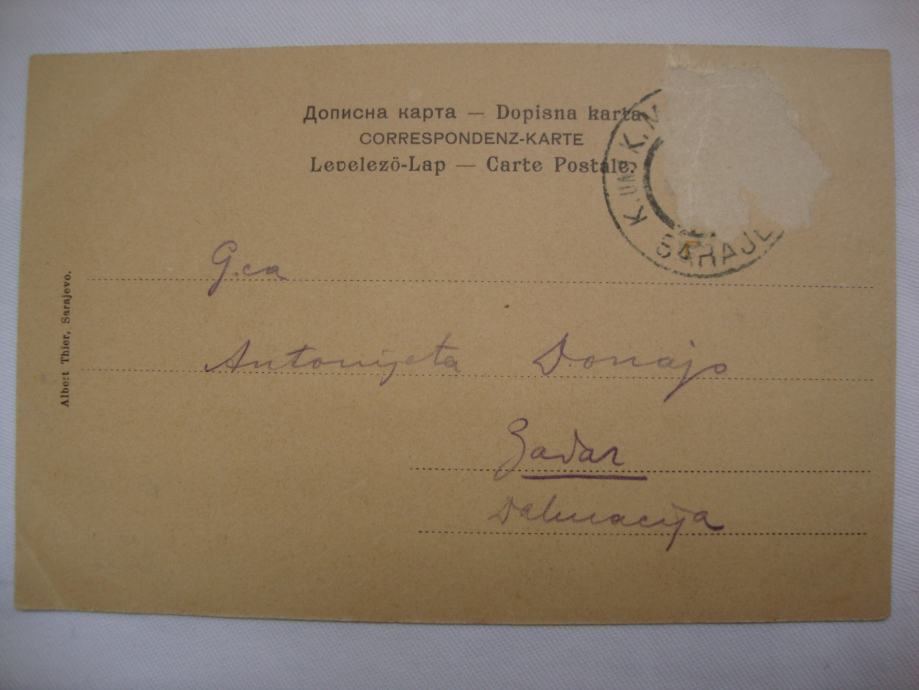 Дописна карта — Dopisna karta
CORRESPONDENZ-KARTE
Levelező-Lap — Carte Postale.
K. UND K. M
SARAJE
G.ca
Antonijeta Donajo
Zadar
Dalmacija
Albert Thier, Sarajevo.